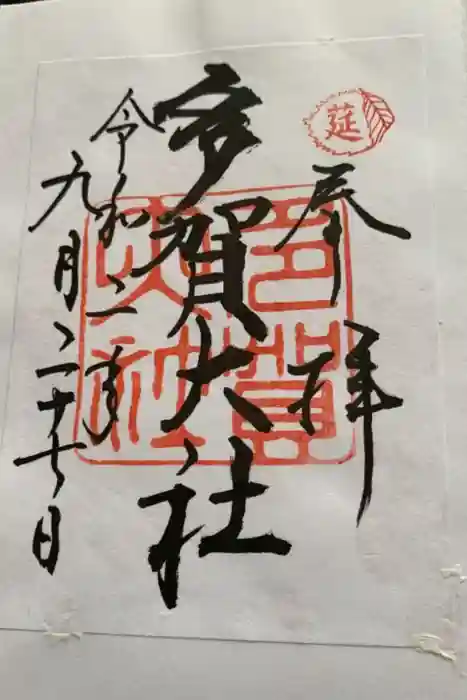 延
奉拝
多賀大社
多賀大社
令和二年
九月二十七日